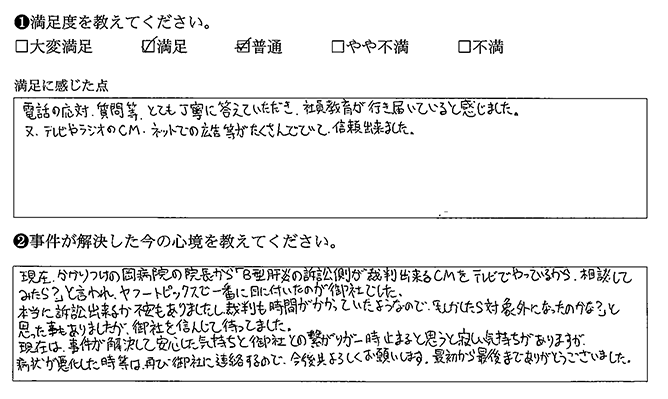 ❶満足度を教えてください。
□大変満足 ☑満足 ☑普通 □やや不満 □不満
満足に感じた点
電話の応対、質問等、とても丁寧に答えていただき、社員教育が行き届いていると感じました。
又、テレビやラジオのCM・ネットでの広告等がたくさんでていて、信頼出来ました。
❷事件が解決した今の心境を教えてください。
現在、かかりつけの 病院の院長から「B型肝炎の訴訟側が裁判出来るCMをテレビでやっているから、相談して
みたら?」と言われ、ヤフートピックスで一番に目に付いたのが御社でした。
本当に訴訟出来るか不安もありましたし裁判も時間がかかっていたようなので、「もしかしたら対象外になったのかな?」と
思った事もありましたが、御社を信じて待ってました。
現在は、事件が解決して安心した気持ちと御社との繋がりが一時止まると思うと寂しい気持ちがありますが、
病状が悪化した時等は、再び御社に連絡するので、今後共よろしくお願いします。最初から最後までありがとうございました。